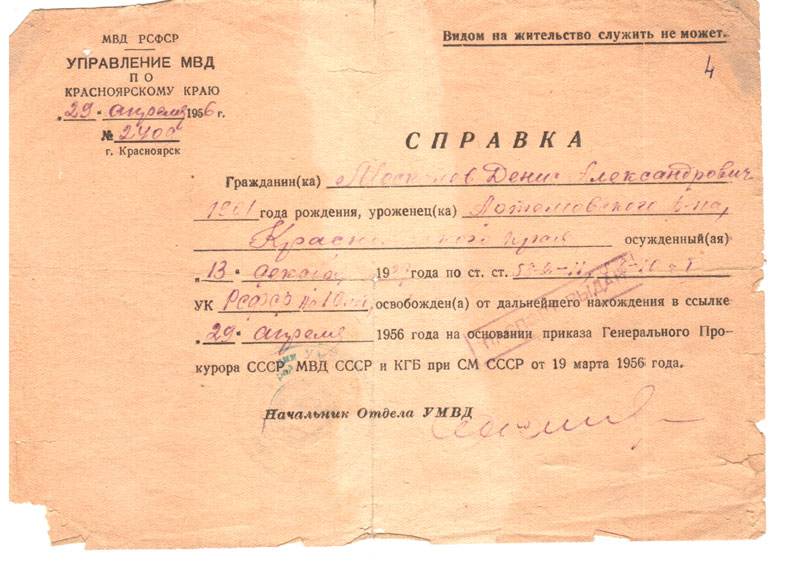 МВД РСФСР
УПРАВЛЕНИЕ МВД
ПО
КРАСНОЯРСКОМУ КРАЮ
„29“ апреля 1956 г.
№ 2400
г. Красноярск
Видом на жительство служить не может.
4
СПРАВКА
Гражданин(ка) Денис Александрович
1901 года рождения, уроженец(ка) р-на,
края осужденный(ая)
„13“ декабря 19 года по ст. ст.
УК РСФСР на 10 лет, освобожден(а) от дальнейшего нахождения в ссылке
„29“ апреля 1956 года на основании приказа Генерального Про-
курора СССР, МВД СССР и КГБ при СМ СССР от 19 марта 1956 года.
Начальник Отдела УМВД